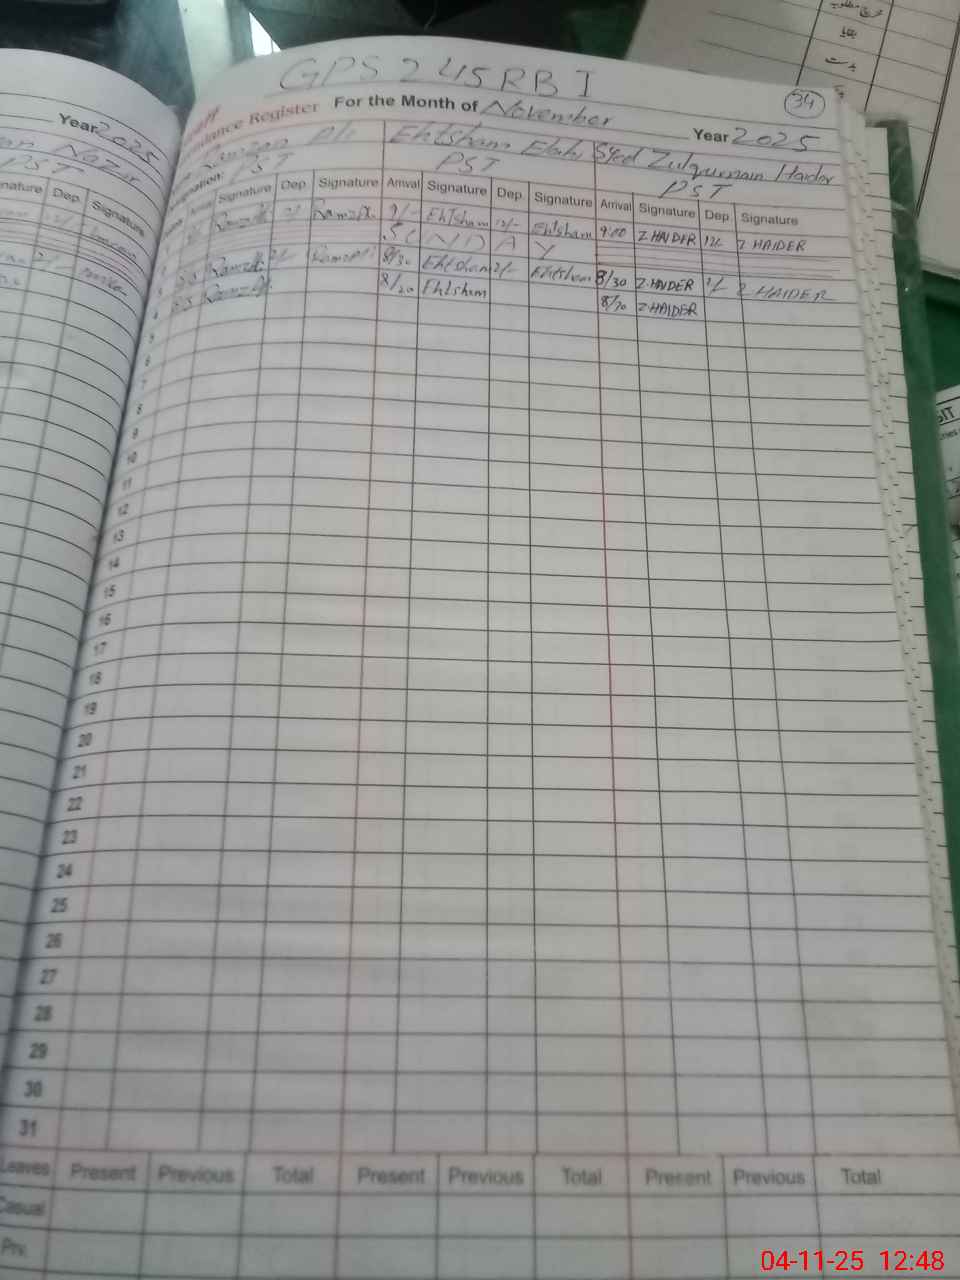 خرچ مطلوبہ
بقایا
34
GPS 245RB I
Attendance Register For the Month of November Year 2025
Year 2025
Nazir
PST
Ramzan Ali Ehtsham Elahi Syed Zulqurnain Haider
PST PST PST
Signature Dep. Signature
Arrival Signature Dep. Signature Arrival Signature Dep. Signature Arrival Signature Dep. Signature
Ramzan 9/- Ehtsham 12/- Ehtsham 9:00 Z HAIDER 12/- Z HAIDER
SUNDAY
8/30 Ehtsham 2/- Ehtsham 8/30 Z.HAIDER 2/- Z HAIDER
8/20 Ehtsham 8/20 Z.HAIDER
5
6
7
8
9
10
11
12
13
14
15
16
17
18
19
20
21
22
23
24
25
26
27
28
29
30
31
Leaves Present Previous Total Present Previous Total Present Previous Total
Casual
Prv.
04-11-25 12:48